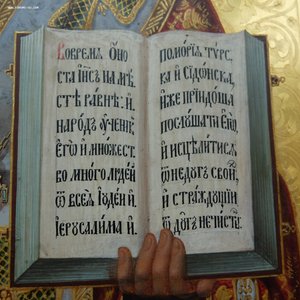 Вовремѧ Ѻно
ста Іи҃съ на мѣ
стѣ равнѣ: и҆
народъ ᲂу҆ченик̾
є҆гѡ̀ и҆ множест.
во много людей
ѿ всеѧ̀ І҆ꙋдеи и҆
Іерꙋсалима и҆.
поморїѧ тѵрс.
ка и҆ Сїдѡнска,
и҆же прїидоша
послꙋшати Є҆гѡ̀,
и҆ исцѣлитисѧ
ѿ недꙋгъ свои҆,
и҆ страждꙋщїи
ѿ дꙋ҃гъ нечисты҆